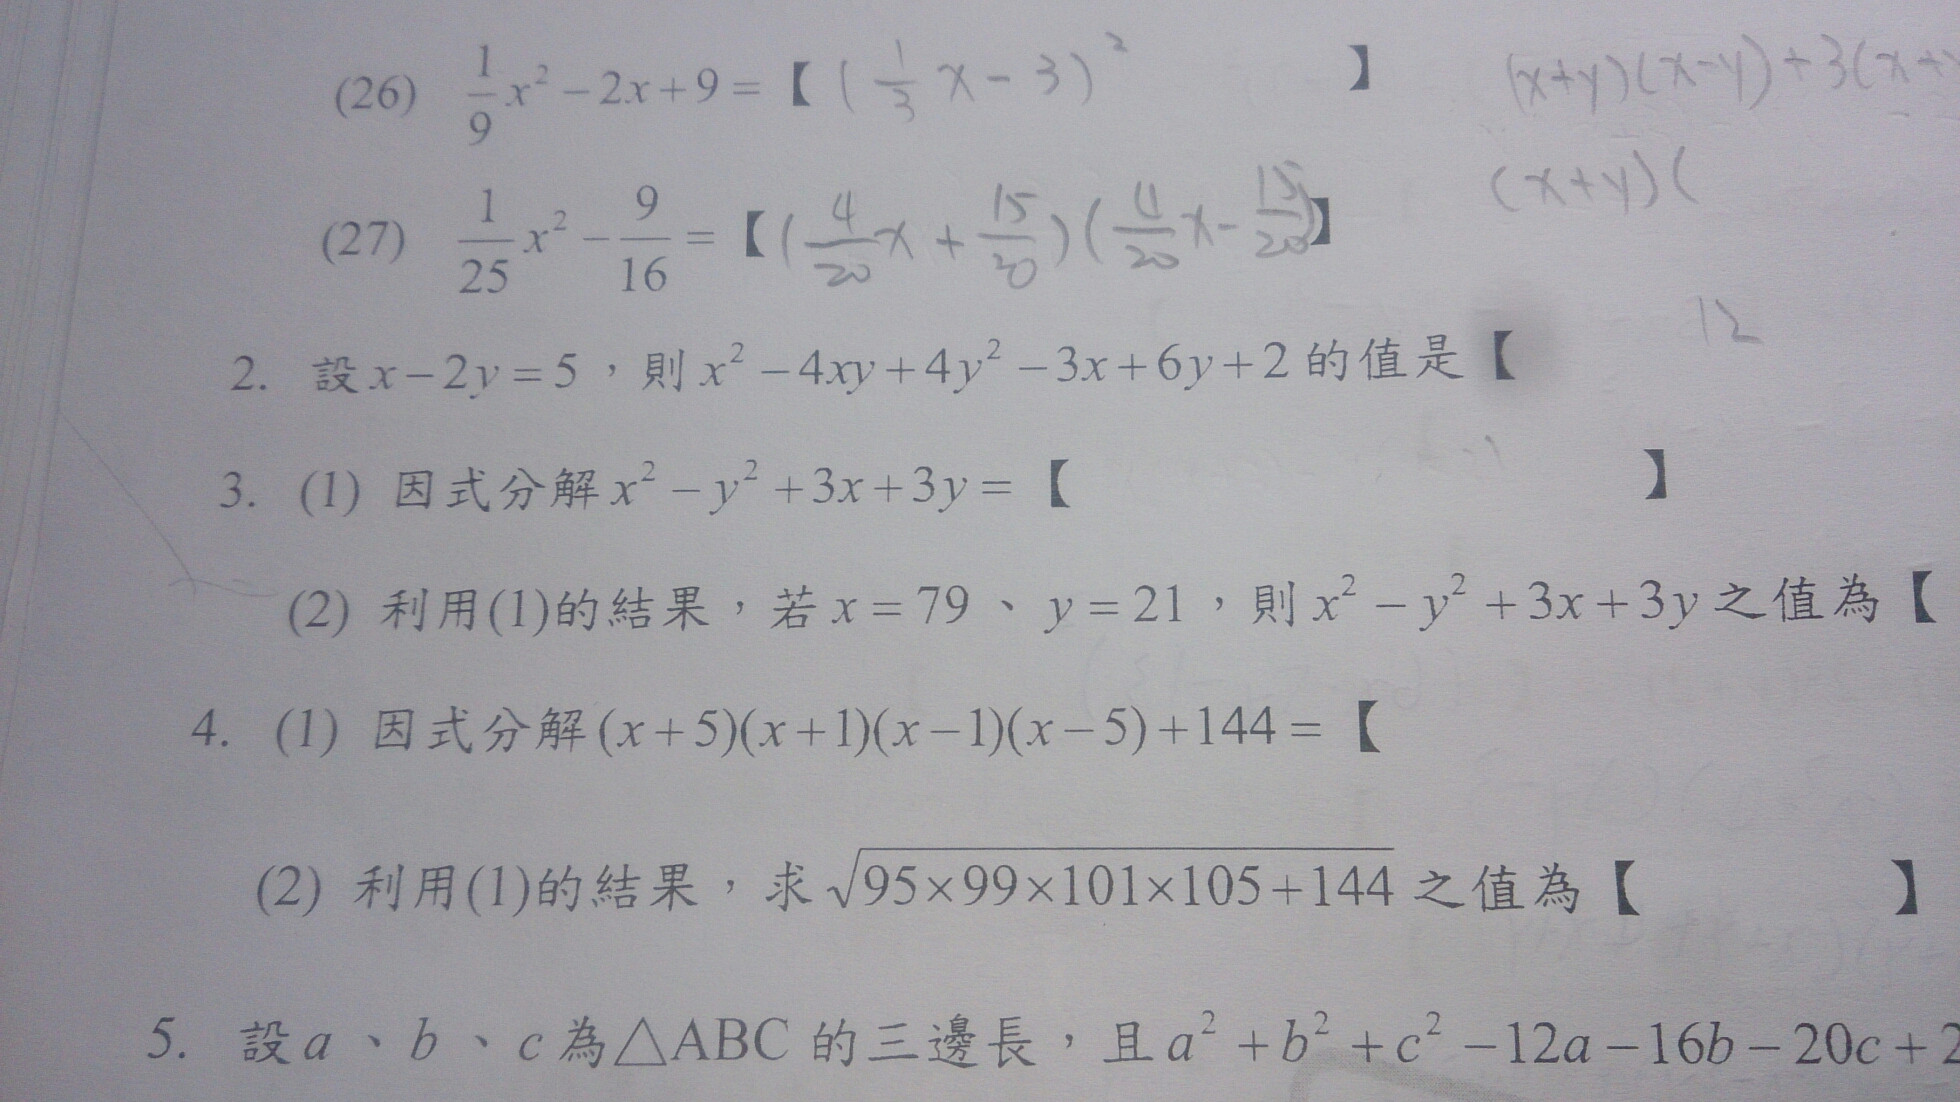 (26) 1/9 x² − 2x + 9 = 【 (1/3 x − 3)² 】 (x+y)(x−y)+3(x+
(27) 1/25 x² − 9/16 = 【(4/20 x + 15/20)(4/20 x − 15/20)】 (x+y)(
12
2. 設 x − 2y = 5，則 x² − 4xy + 4y² − 3x + 6y + 2 的值是【
3. (1) 因式分解 x² − y² + 3x + 3y = 【 】
(2) 利用(1)的結果，若 x = 79、y = 21，則 x² − y² + 3x + 3y 之值為【
4. (1) 因式分解 (x+5)(x+1)(x−1)(x−5)+144 = 【
(2) 利用(1)的結果，求 √(95×99×101×105+144) 之值為【 】
5. 設 a、b、c 為△ABC 的三邊長，且 a² + b² + c² − 12a − 16b − 20c + 2